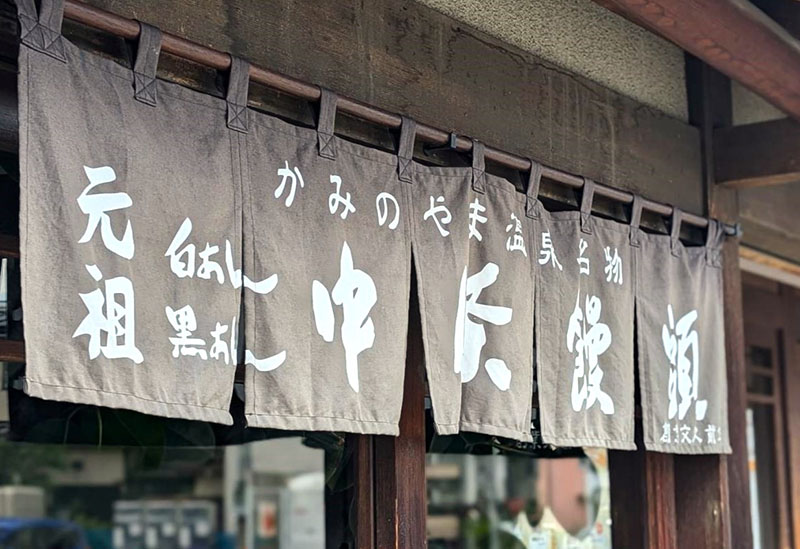 元祖
白あん
黒あん
かみのやま温泉名物
中條饅頭